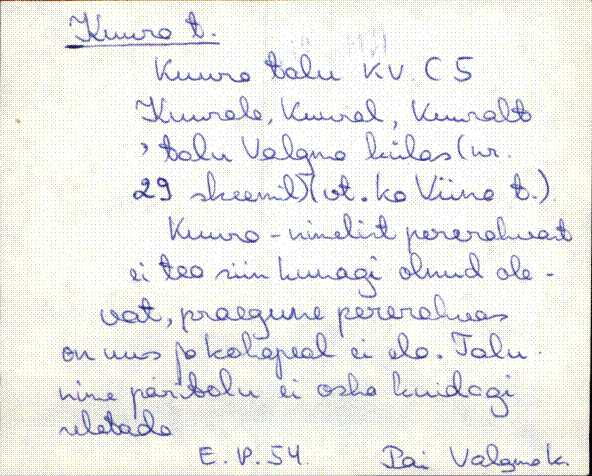 Kuura t.
Kuura talu KV. C 5
Kuurale, Kuural, Kuuralt
, talu Valgma külas (nr.
29 skeemil) (vt. ka Viina t.)
Kuura-nimelist pererahvast
ei tea siin kunagi olnud ole-
vat, praegune pererahvas
on uus ja kohapeal ei ela. Talu
nime päritolu ei osha kuidagi
seletada
E. P. 54. Pai Valgma k.